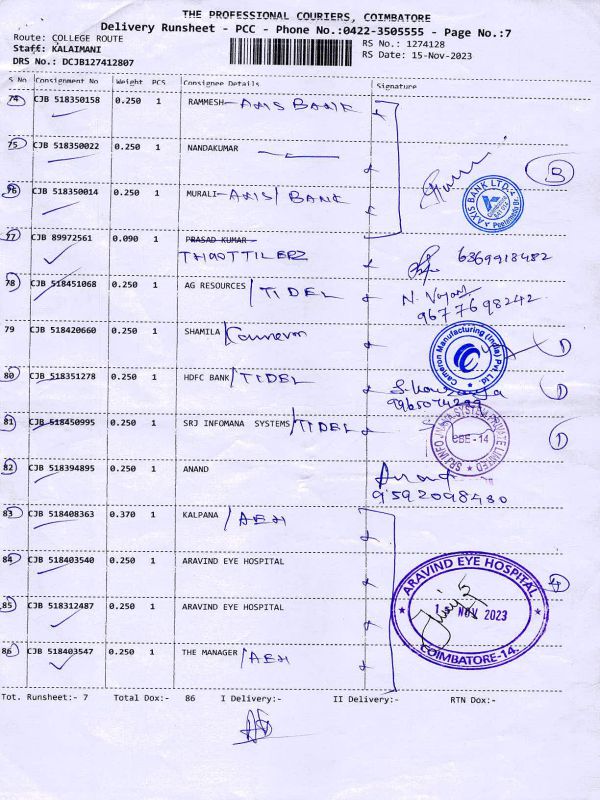 THE PROFESSIONAL COURIERS, COIMBATORE
Delivery Runsheet - PCC - Phone No.:0422-3505555 - Page No.:7
Route: COLLEGE ROUTE RS No.: 1274128
Staff: KALAIMANI RS Date: 15-Nov-2023
DRS No.: DCJB127412807
S No Consignment No Weight PCS Consignee Details Signature
74 CJB 518350158 0.250 1 RAMMESH-AXIS BANK
75 CJB 518350022 0.250 1 NANDAKUMAR
AXIS BANK LTD.
76 CJB 518350014 0.250 1 MURALI-AXIS/BANK
77 CJB 89972561 0.090 1 PRASAD KUMAR
THROTTILERZ 6369918482
78 CJB 518451068 0.250 1 AG RESOURCES/TIDEL
9677698242
79 CJB 518420660 0.250 1 SHAMILA/Cameron
Cameron Manufacturing (India) Pvt. Ltd.
80 CJB 518351278 0.250 1 HDFC BANK/TIDEL
81 CJB 518450995 0.250 1 SRJ INFOMANA SYSTEMS/TIDEL
CBE-14
82 CJB 518394895 0.250 1 ANAND
Anand
9592098430
83 CJB 518408363 0.370 1 KALPANA/AEH
84 CJB 518403540 0.250 1 ARAVIND EYE HOSPITAL
ARAVIND EYE HOSPITAL
85 CJB 518312487 0.250 1 ARAVIND EYE HOSPITAL
NOV 2023
COIMBATORE-14.
86 CJB 518403547 0.250 1 THE MANAGER/AEH
Tot. Runsheet:- 7 Total Dox:- 86 I Delivery:- II Delivery:- RTN Dox:-